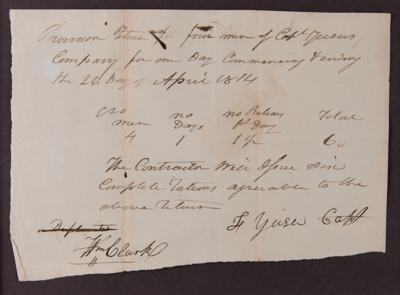 Provision Return for four men of Capt Yeisers
Company for one Day Commencing & ending
the 26 Day of April 1814
No men no Days no Rations pr Day Total
4 1 1½ 6
The Contractor Will Issue Six
Complete Rations agreeable to the
above Return
F Yeiser Capt
Duplicate
Wm Clark